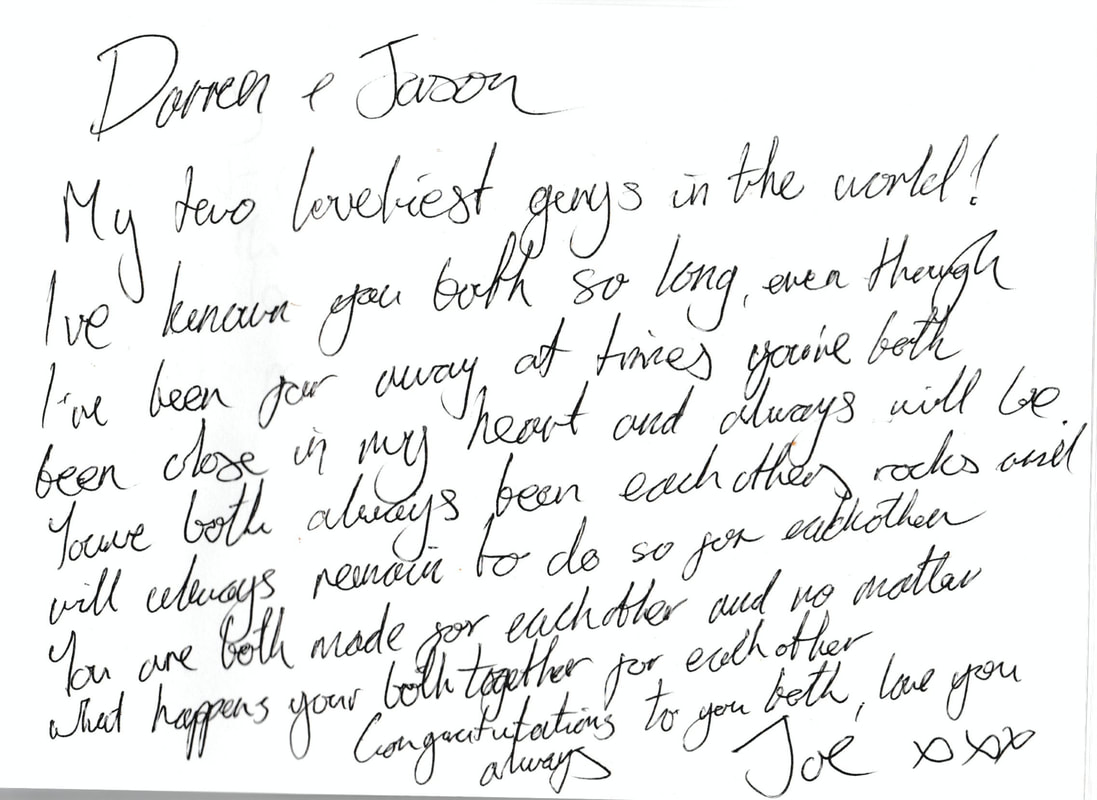 Darren & Jason
My two loveliest guys in the world!
I've known you both so long, even though
I've been far away at times you've both
been close in my heart and always will be.
Youve both always been each others rocks and
will always remain to do so for eachother
You are both made for eachother and no matter
what happens your both together for each other
Congratulations to you both, love you
always Joe xxx